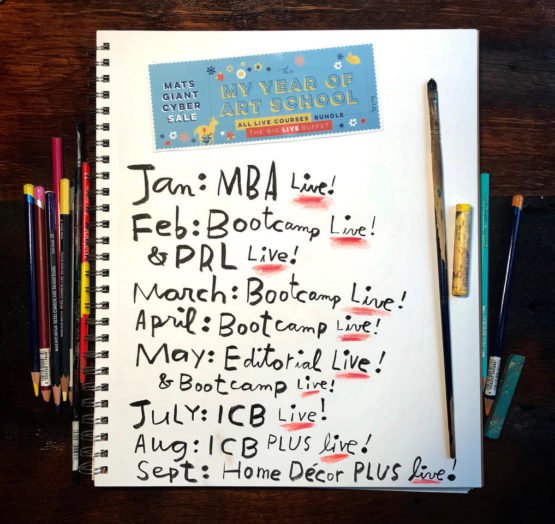 MATS
GIANT
CYBER
SALE
The
MY YEAR OF
ART SCHOOL
ALL LIVE COURSES BUNDLE
THE BIG LIVE BUFFET
Jan: MBA Live!
Feb: Bootcamp Live!
& DRL Live!
March: Bootcamp Live!
April: Bootcamp Live!
May: Editorial Live!
& Bootcamp Live!
JULY: ICB Live!
Aug: ICB PLUS live!
Sept: Home Décor PLUS live!